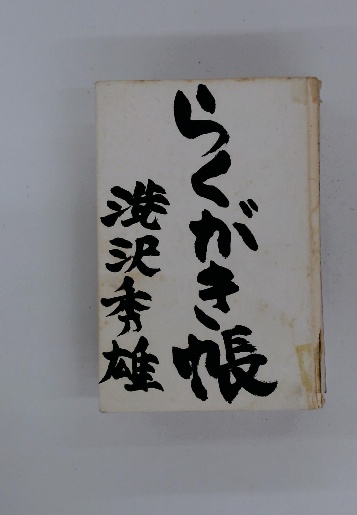 らくがき帳
渋沢秀雄